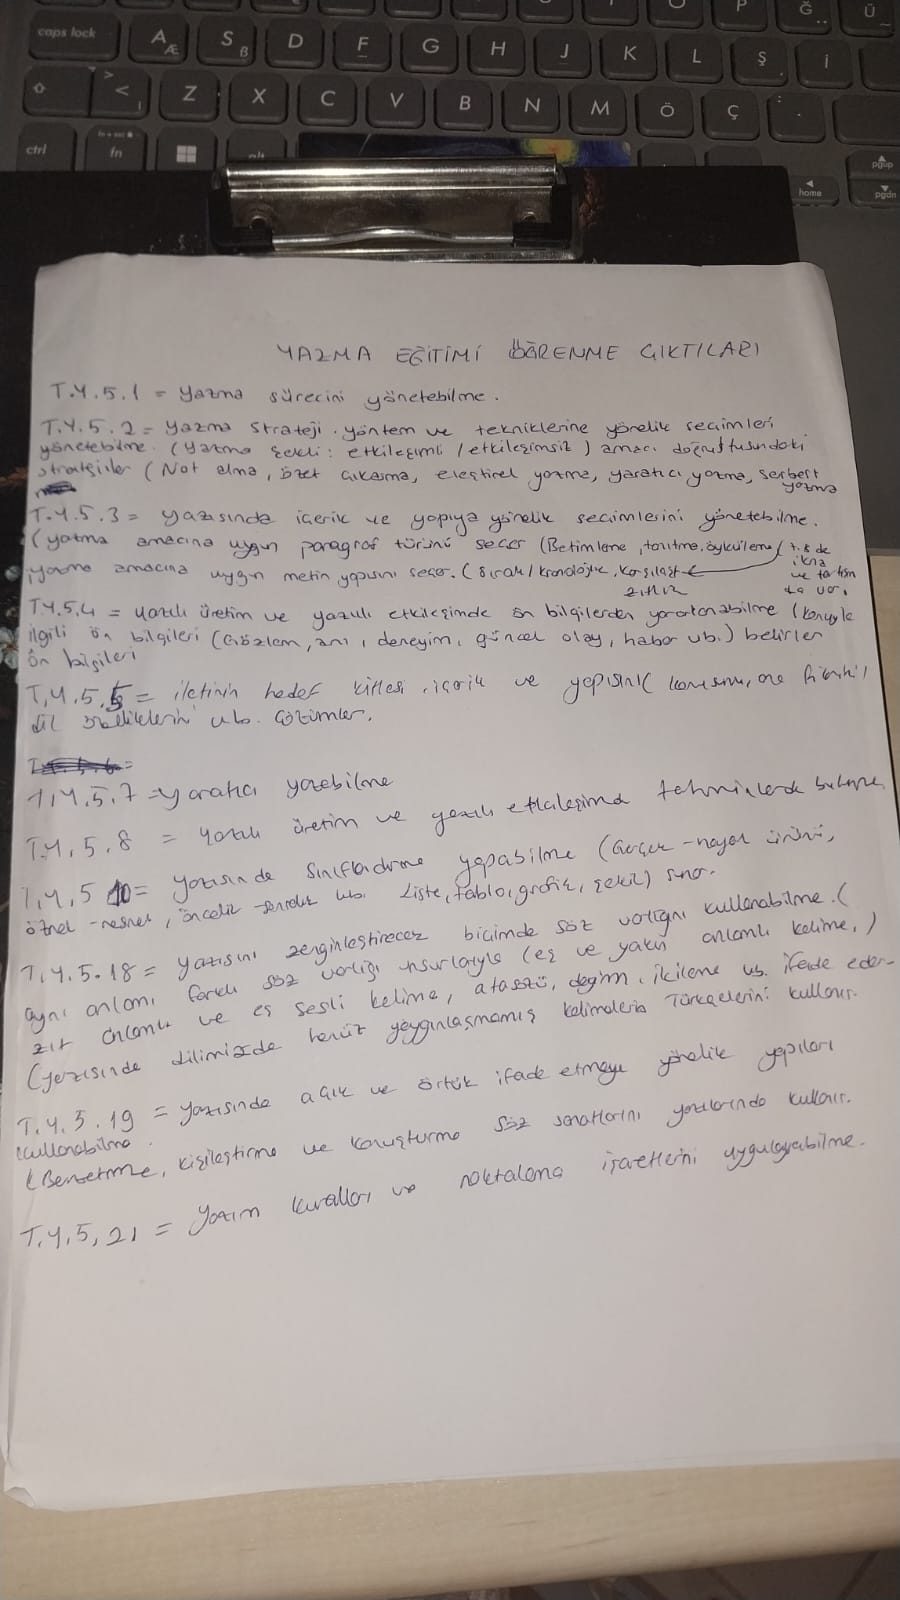 caps lock A Æ S ß D F G H J K L Ş İ
> < Z X C V B N M Ö Ç
ctrl fn home pgup pgdn
YAZMA EĞİTİMİ ÖĞRENME ÇIKTILARI
T.Y.5.1 = Yazma sürecini yönetebilme.
T.Y.5.2 = Yazma strateji, yöntem ve tekniklerine yönelik seçimleri
yönetebilme. (Yazma şekli: etkileşimli / etkileşimsiz) amacı doğrultusundaki
stratejiler (Not alma, özet çıkarma, eleştirel yazma, yaratıcı yazma, serbest
yazma
T.Y.5.3 = yazısında içerik ve yapıya yönelik seçimlerini yönetebilme.
(yazma amacına uygun paragraf türünü seçer (Betimleme, tanıtma, öyküleme / 7.8 de
ikna
ve tartışma
da var.
yazma amacına uygun metin yapısını seçer. (Sıralı / kronolojik, karşılaşt
zıtlık
T.Y.5.4 = yazılı üretim ve yazılı etkileşimde ön bilgilerden yararlanabilme (konuyla
ilgili ön bilgileri (Gözlem, anı, deneyim, güncel olay, haber vb.) belirler
ön bilgileri
T.Y.5.5 = iletinin hedef kitlesi, içerik ve yapısını ( konusunu, ana fikrini
dil özelliklerini vb. çözümler.
T.Y.5.7 = yaratıcı yazabilme
T.Y.5.8 = yazılı üretim ve yazılı etkileşimde tahminlerde
T.Y.5.10 = yazısında sınıflandırma yapabilme (Gerçek - hayal ürünü,
öznel - nesnel, öncelik - sonralık vb. Liste, tablo, grafik, şekil) sınıf.
T.Y.5.18 = yazısını zenginleştirecek biçimde söz varlığını kullanabilme. (
aynı anlamı farklı söz varlığı unsurlarıyla (eş ve yakın anlamlı kelime,)
zıt anlamlı ve eş sesli kelime, atasözü, deyim, ikileme vb. ifade eder.
(yazısında dilimizde henüz yaygınlaşmamış kelimelerin Türkçelerini kullanır.
T.Y.5.19 = yazısında açık ve örtük ifade etmeye yönelik yapıları
kullanabilme.
(Benzetme, kişileştirme ve konuşturma söz sanatlarını yazılarında kullanır.
T.Y.5.21 = yazım kuralları ve noktalama işaretlerini uygulayabilme.